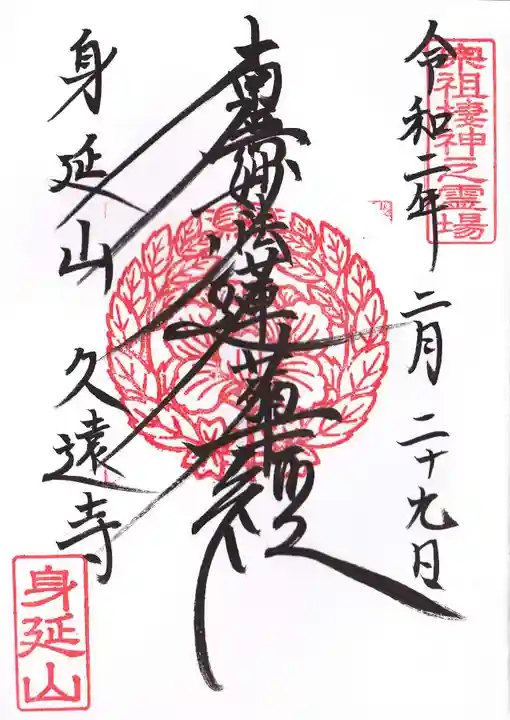 奥祖棲神之霊場
令和二年 二月 二十九日
南無妙法蓮華経
身延山 久遠寺
身延山